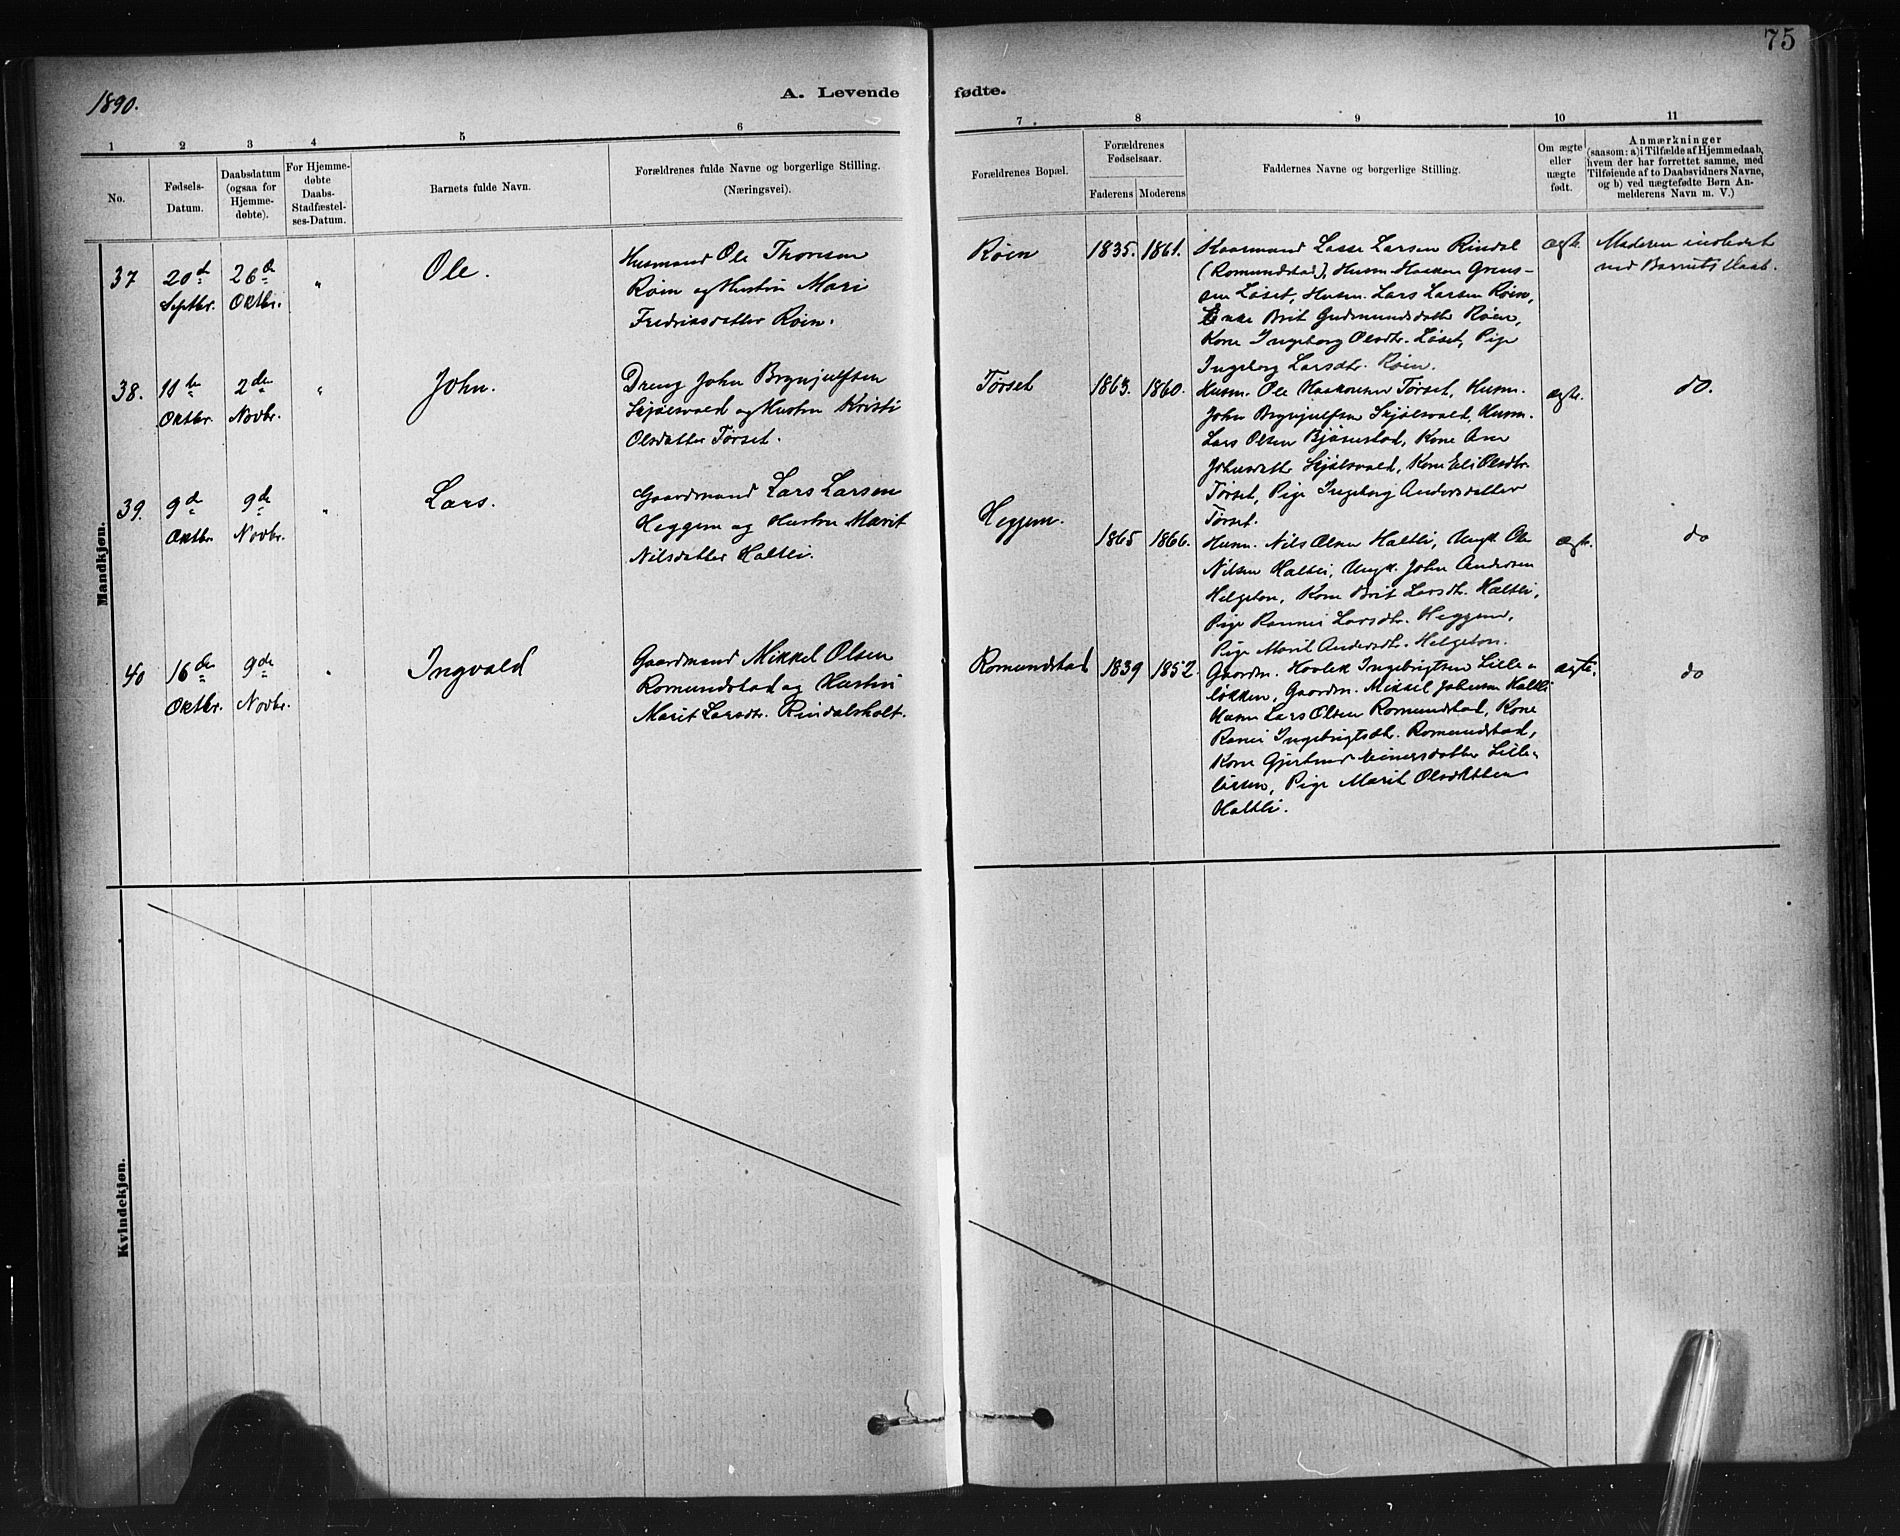 75
1890.
A. Levende fødte.
1 2 3 4 5 6 7 8 9 10 11
No.
Fødsels-Datum.
Daabsdatum (ogsaa for Hjemmedøbte).
For Hjemmedøbte Daabs-Stadfæstelses-Datum.
Barnets fulde Navn.
Forældrenes fulde Navne og borgerlige Stilling.
(Næringsvei).
Forældrenes Bopæl.
Forældrenes Fødselsaar.
Faderens Moderens
Faddernes Navne og borgerlige Stilling.
Om ægte eller uægte født.
Anmærkninger
(saasom: a) i Tilfælde af Hjemmedaab,
hvem der har forrettet samme, med
Tilføiende af to Daabsvidners Navne,
og b) ved uægtefødte Børn An-
melderens Navn m. V.)
Mandkjøn.
37
20de Septbr.
26de Oktbr.
"
Ole.
Husmand Ole Thoresen
Røen og Hustru Mari
Fredriksdatter Røen.
Røen
1835. 1861.
Kaarmand Lasse Larsen Rindal
(Romundstad), Husm. Haaken
Løset, Husm. Lars Larsen Røen,
Enke Brit Gudmundsdatter Røen,
Kone Ingeborg Olsdtr. Løset, Pige
Ingeborg Larsdtr. Røen.
ægte.
Moderen indledet
ved Barnets Daab.
38.
11te Oktbr.
2den Novbr.
"
John.
Dreng John Brynjulfsen
Skjølsvold og Hustru Kristi
Olsdatter Tørset.
Tørset
1863. 1860.
Husm. Ole Haakonsen Tørset, Husm.
John Brynjulfsen Skjølsvold, Husm.
Lars Olsen Bjørnstad, Kone Ane
Johnsdatter Skjølsvold, Kone Eli Olsdtr.
Tørset, Pige Ingeborg Andersdatter
Tørset.
ægte.
do.
39.
9de Oktbr.
9de Novbr.
"
Lars.
Gaardmand Lars Larsen
Heggem og Hustru Marit
Nilsdatter Haltli.
Heggem.
1865 1866.
Husm. Nils Olsen Haltli, Ungk. Ole
Nilsen Haltli, Ungk. John Andersen
Helgeton, Kone Brit Larsdtr. Haltli,
Pige Rannei Larsdtr. Heggem,
Pige Marit Andersdtr. Helgeton.
ægte.
do
40
16de Oktbr.
9de Novbr.
"
Ingvald
Gaardmand Mikkel Olsen
Romundstad og Hustru
Marit Larsdtr. Rindalsholt.
Romundstad
1839 1852.
Gaardm. Ingebrigtsen Lille-
løkken, Gaardm. Mikkel Johnsen Haltli
Husm Lars Olsen Romundstad, Kone
Ranei Ingebrigtsdtr. Romundstad,
Kone Gjertrud Lille-
løkken, Pige Marit Olsdatter
Haltli.
ægte.
do
Kvindekjøn.